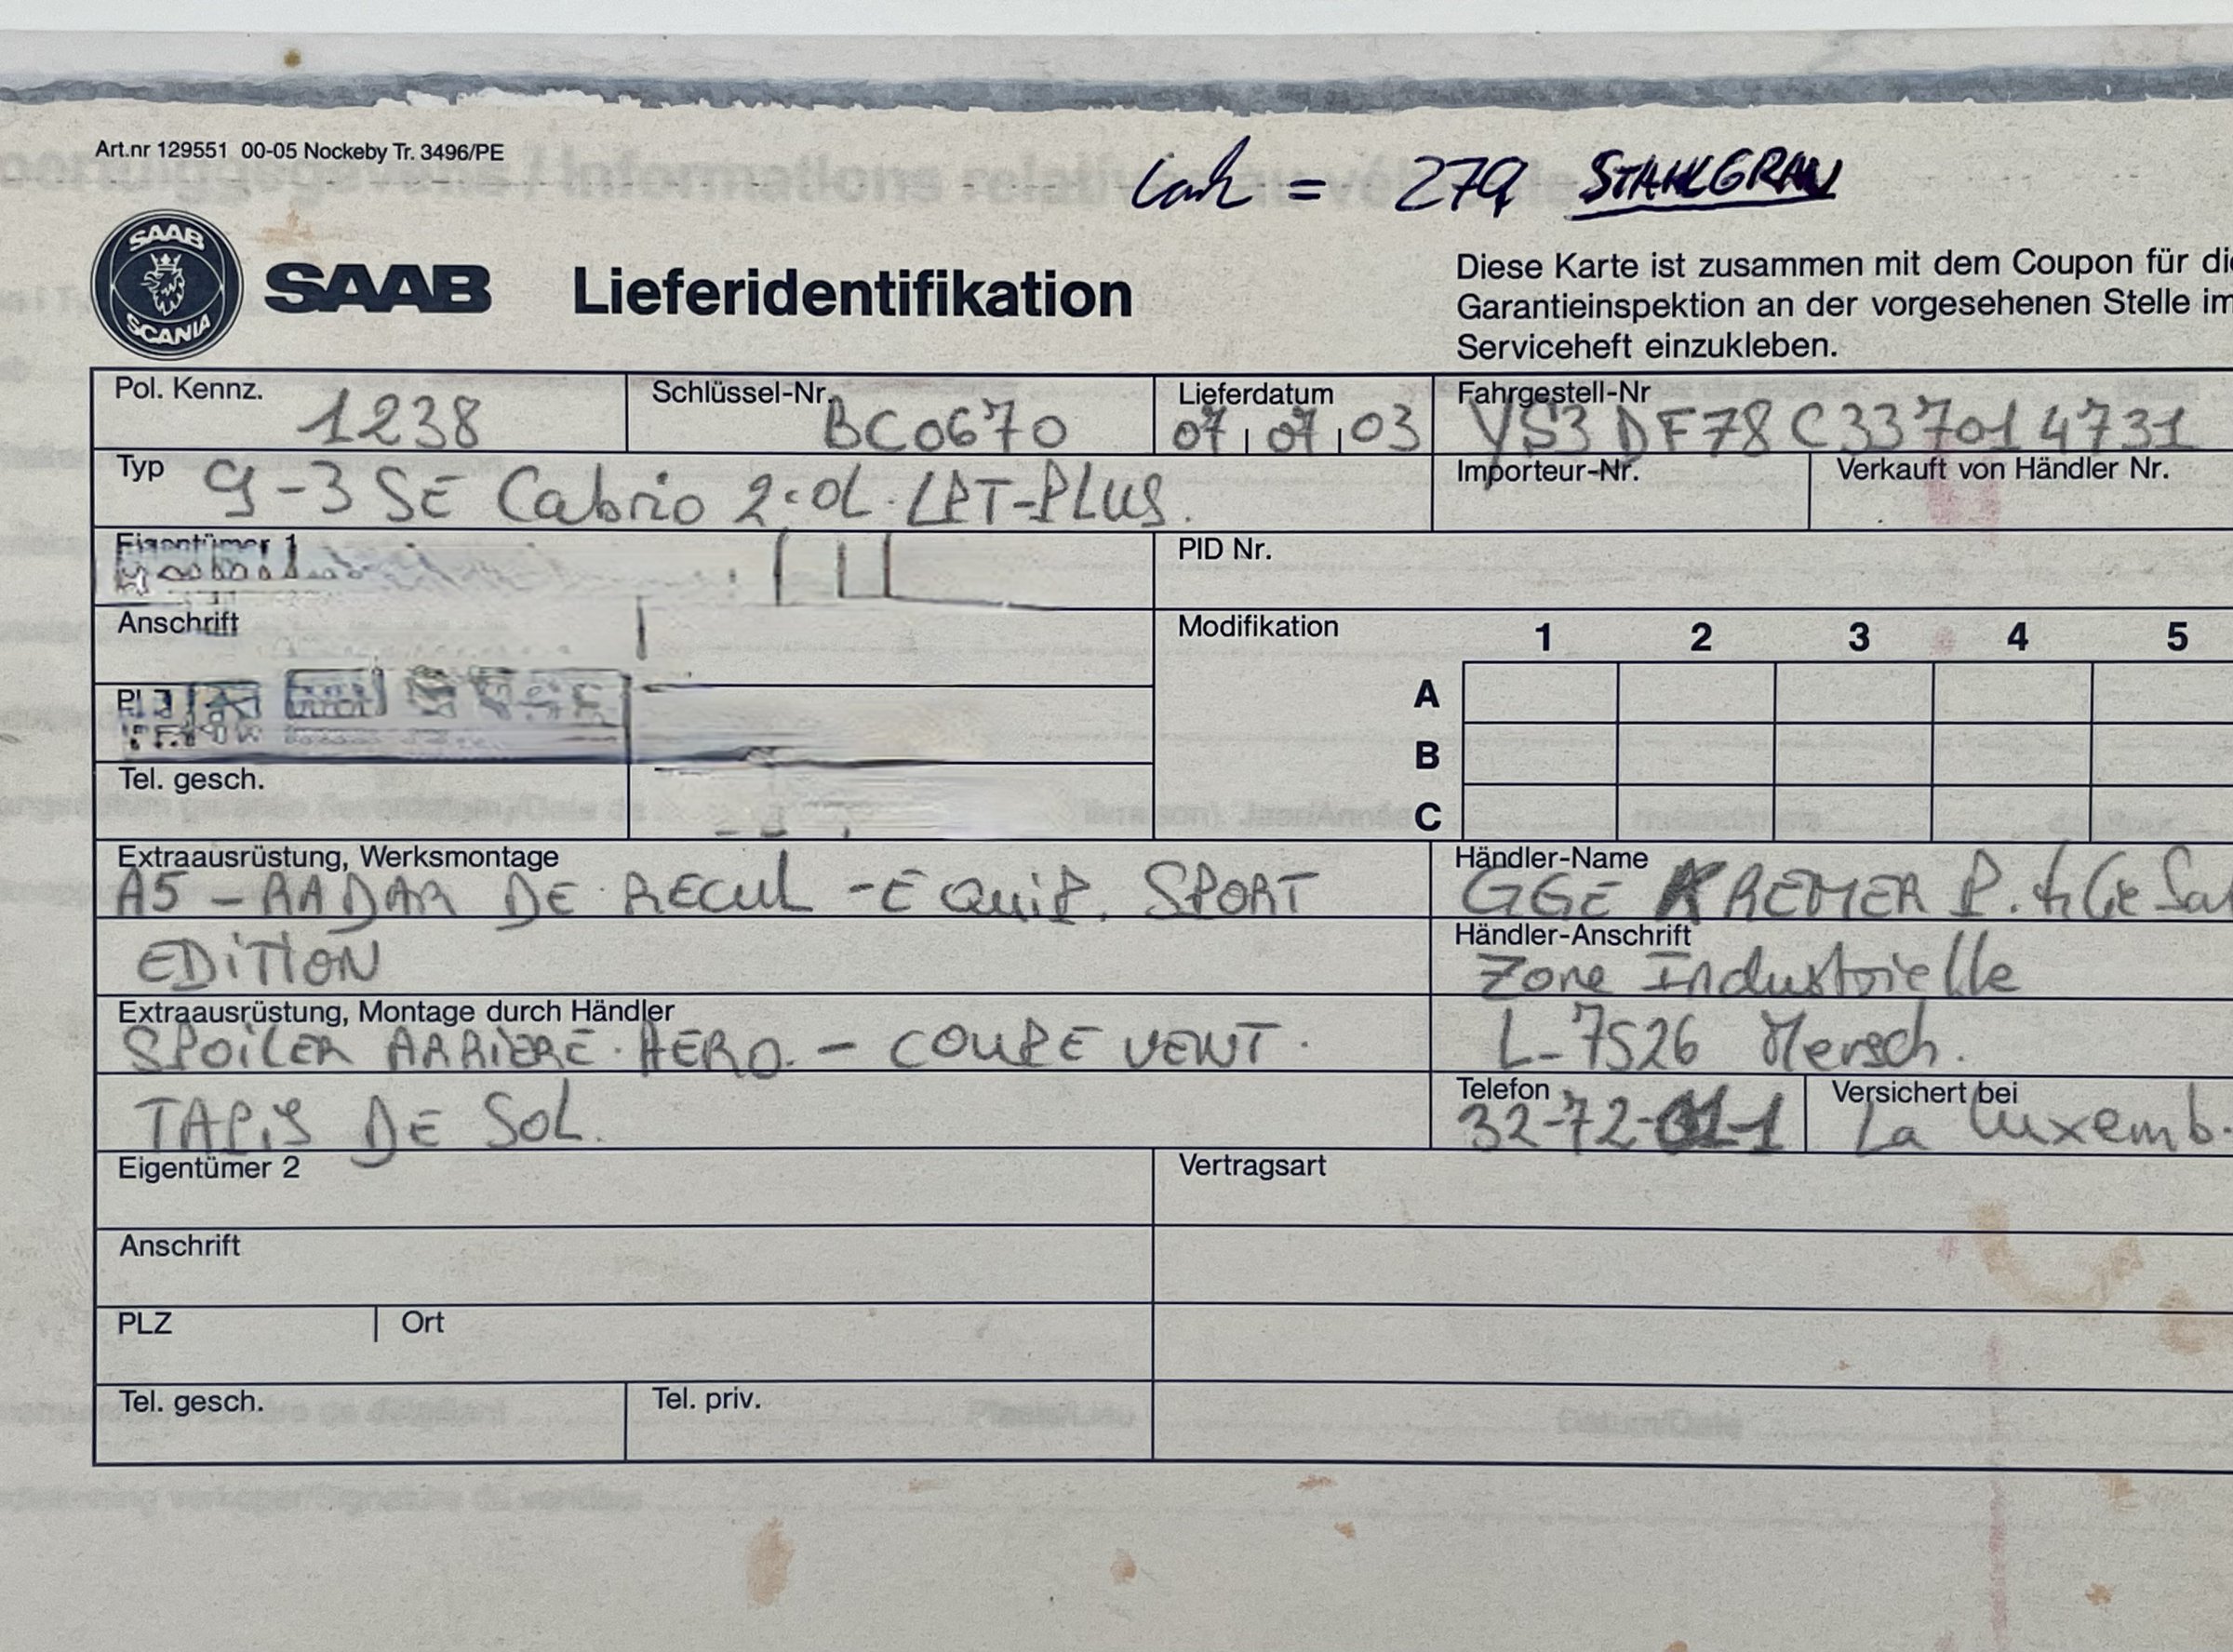 Art.nr 129551 00-05 Nockeby Tr. 3496/PE
Lack = 279 STAHLGRAU
SAAB
SCANIA
SAAB Lieferidentifikation
Diese Karte ist zusammen mit dem Coupon für die
Garantieinspektion an der vorgesehenen Stelle im
Serviceheft einzukleben.
Pol. Kennz. 1238 Schlüssel-Nr. BC0670 Lieferdatum 07 07 03 Fahrgestell-Nr YS3DF78C337014731
Typ 9-3 SE Cabrio 2.0L. LPT-PLUS. Importeur-Nr. Verkauft von Händler Nr.
Eigentümer 1 PID Nr.
Anschrift Modifikation 1 2 3 4 5
A
B
Tel. gesch.
C
Extraausrüstung, Werksmontage Händler-Name
A5 - RADAR DE RECUL - EQUIP. SPORT GGE KREMER P.
EDITION
Händler-Anschrift
Zone Industrielle
Extraausrüstung, Montage durch Händler
SPOILER ARRIERE AERO. - COUPE VENT. L-7526 Mersch.
TAPIS DE SOL.
Telefon 32-72-01-1 Versichert bei La Luxemb.
Eigentümer 2 Vertragsart
Anschrift
PLZ Ort
Tel. gesch. Tel. priv.